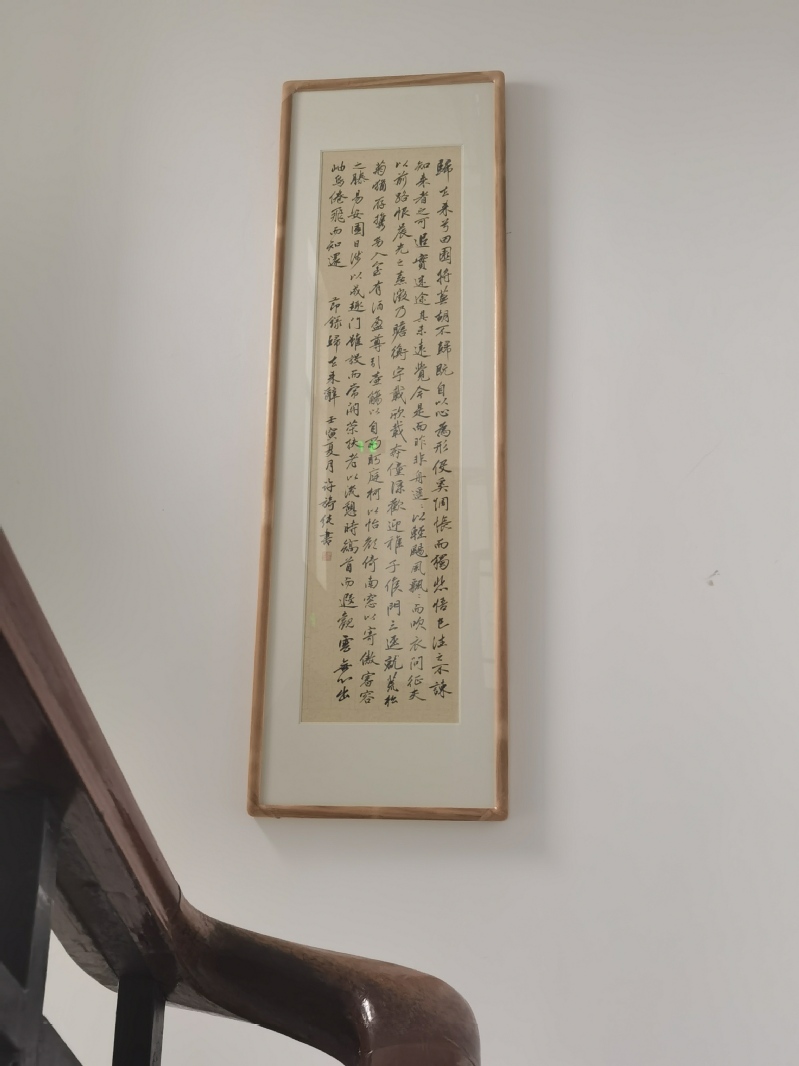 歸去来兮田園將蕪胡不歸既自以心為形役奚惆悵而獨悲悟已往之不諫
知来者之可追實迷途其未遠覺今是而昨非舟遥:以輕颺風飄:而吹衣問征夫
以前路恨晨光之熹微乃瞻衡宇載欣載奔僮僕歡迎稚子候門三逕就荒松
菊猶存攜幼入室有酒盈尊引壺觴以自酌眄庭柯以怡顏倚南窓以寄傲審容
之膝易安園日涉以成趣門雖設而常關策扶老以流憩時矯首而遐觀雲無心出
岫鳥倦飛而知還 節録歸去来辭 壬寅夏月許書